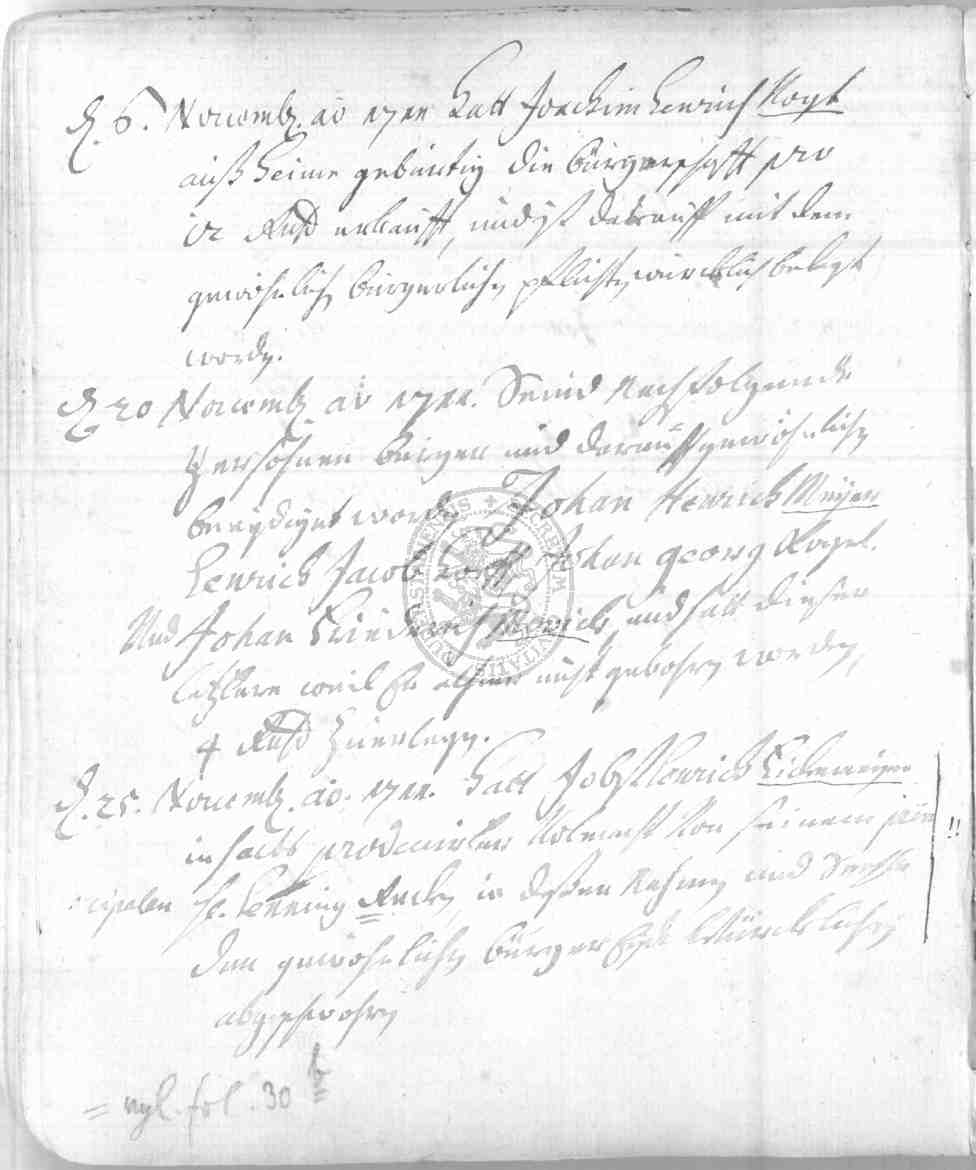 d. 6. Novemb. ao 1711 Hatt Joachim Henrich Vogt
auß Heime gebürtig die bürgerschafft pro
12 Rthlr erkaufft, und ist darauff mit dem
gewöhnlich bürgerlichen pflichten würcklich belegt
worden.
d. 20 Novemb. ao 1711. Seind Nachfolgende
Persohnen bürger und darauff gewöhnlichen
beeydiget worden Johan Henrich Meyer
Henrich Jacob Johan Georg Kagel.
Und Johan und hatt dieser
letztere weil Er alhier nicht gebohren worden,
4 Rthlr zuerlegen.
d. 25. Novemb. ao. 1711. Hatt Jobst Henrich Eickemeyer
inhalts producirter Volmacht Von seinem prin
cipalen H. Henning in deßen Nahmen und Seehle
den gewöhnlichen bürger Eydt Würcklichen
abgeschwohren
!!
= vgl. fol. 30 b
SECRETUM CIVITATIS